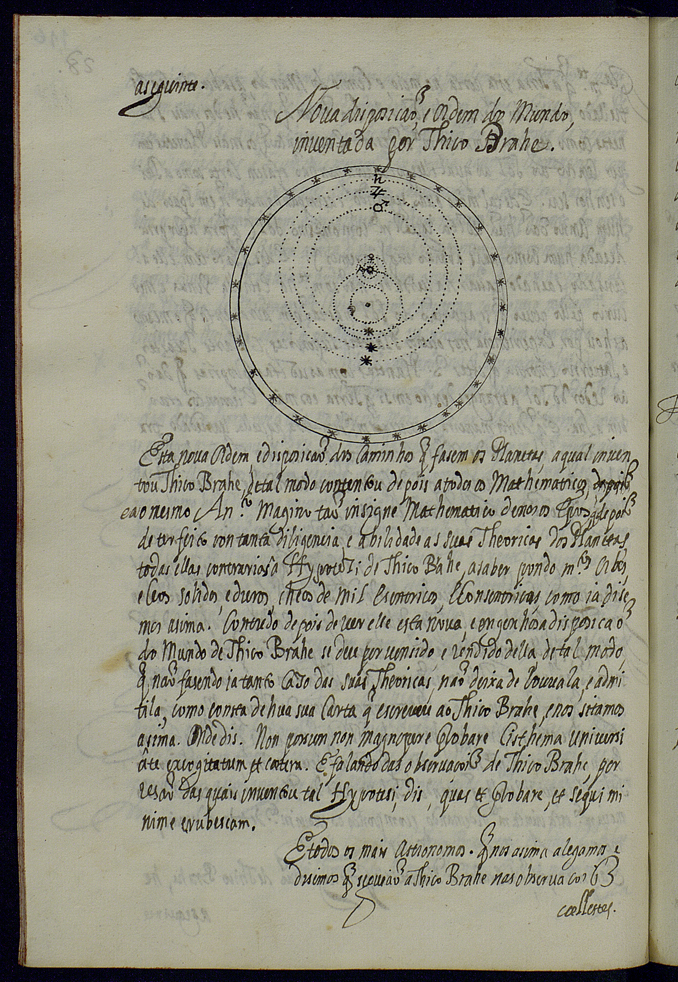 aseguinte.
Nova disposicaõ, e Ordem do Mundo,
inventada por Thico Brahe.
♄
♃
♂
♀
Esta nova Ordem edisposicaõ dos Caminhos q̃ fasem os Planetas, aqual inven
tou Thico Brahe, detal modo contentou depois atodos os Mathematicos,
omesmo An.º Magino taõ insigne Mathematico denosos
de ter feito con tanta diligencia, e abilidade as suas Theoricas dos Planetas,
todas ellas contrarias a Hypotesi de Thico Bahe, asaber pondo m.tos Orbes,
eCeos solidos, eduros, cheos de mil Esentricos, eConsentricos como ja dise
mos asima. Contudo depois de ver elle esta nova, e engenhoza disposicaõ
do Mundo de Thico Brahe se deu por vencido e rendido della de tal modo
q̃ naõ fasendo ja tanto Cazo das suas Theoricas, naõ deixa de louvala, e admi
tila, como consta de hua sua Carta q̃ escreveu ao Thico Brahe, enos sitamos
asima. Onde dis. Non possum non magnopere probare Cisthema Universi
â te excogitatum, et cætera. E falando das observacoẽs de Thico Brahe por
resaõ das quais inventou tal Hypotesi dis, quas et probare, et sequi mi
nime erubescam.
E todos os mais Astronomos. q̃ nos asima alegamos e
disimos q̃ seguiaõ a Thico Brahe nas observacoẽs
cœllestes.